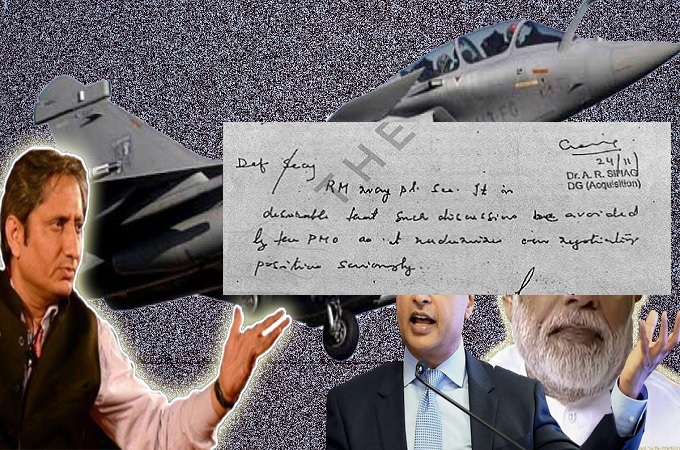 THE
24/11
Dr. A. R. SIHAG
DG (Acquisition)
Def Secy
RM may pl. see. It is
desirable that such discussions be avoided
by the PMO as it undermines our negotiating
position seriously.